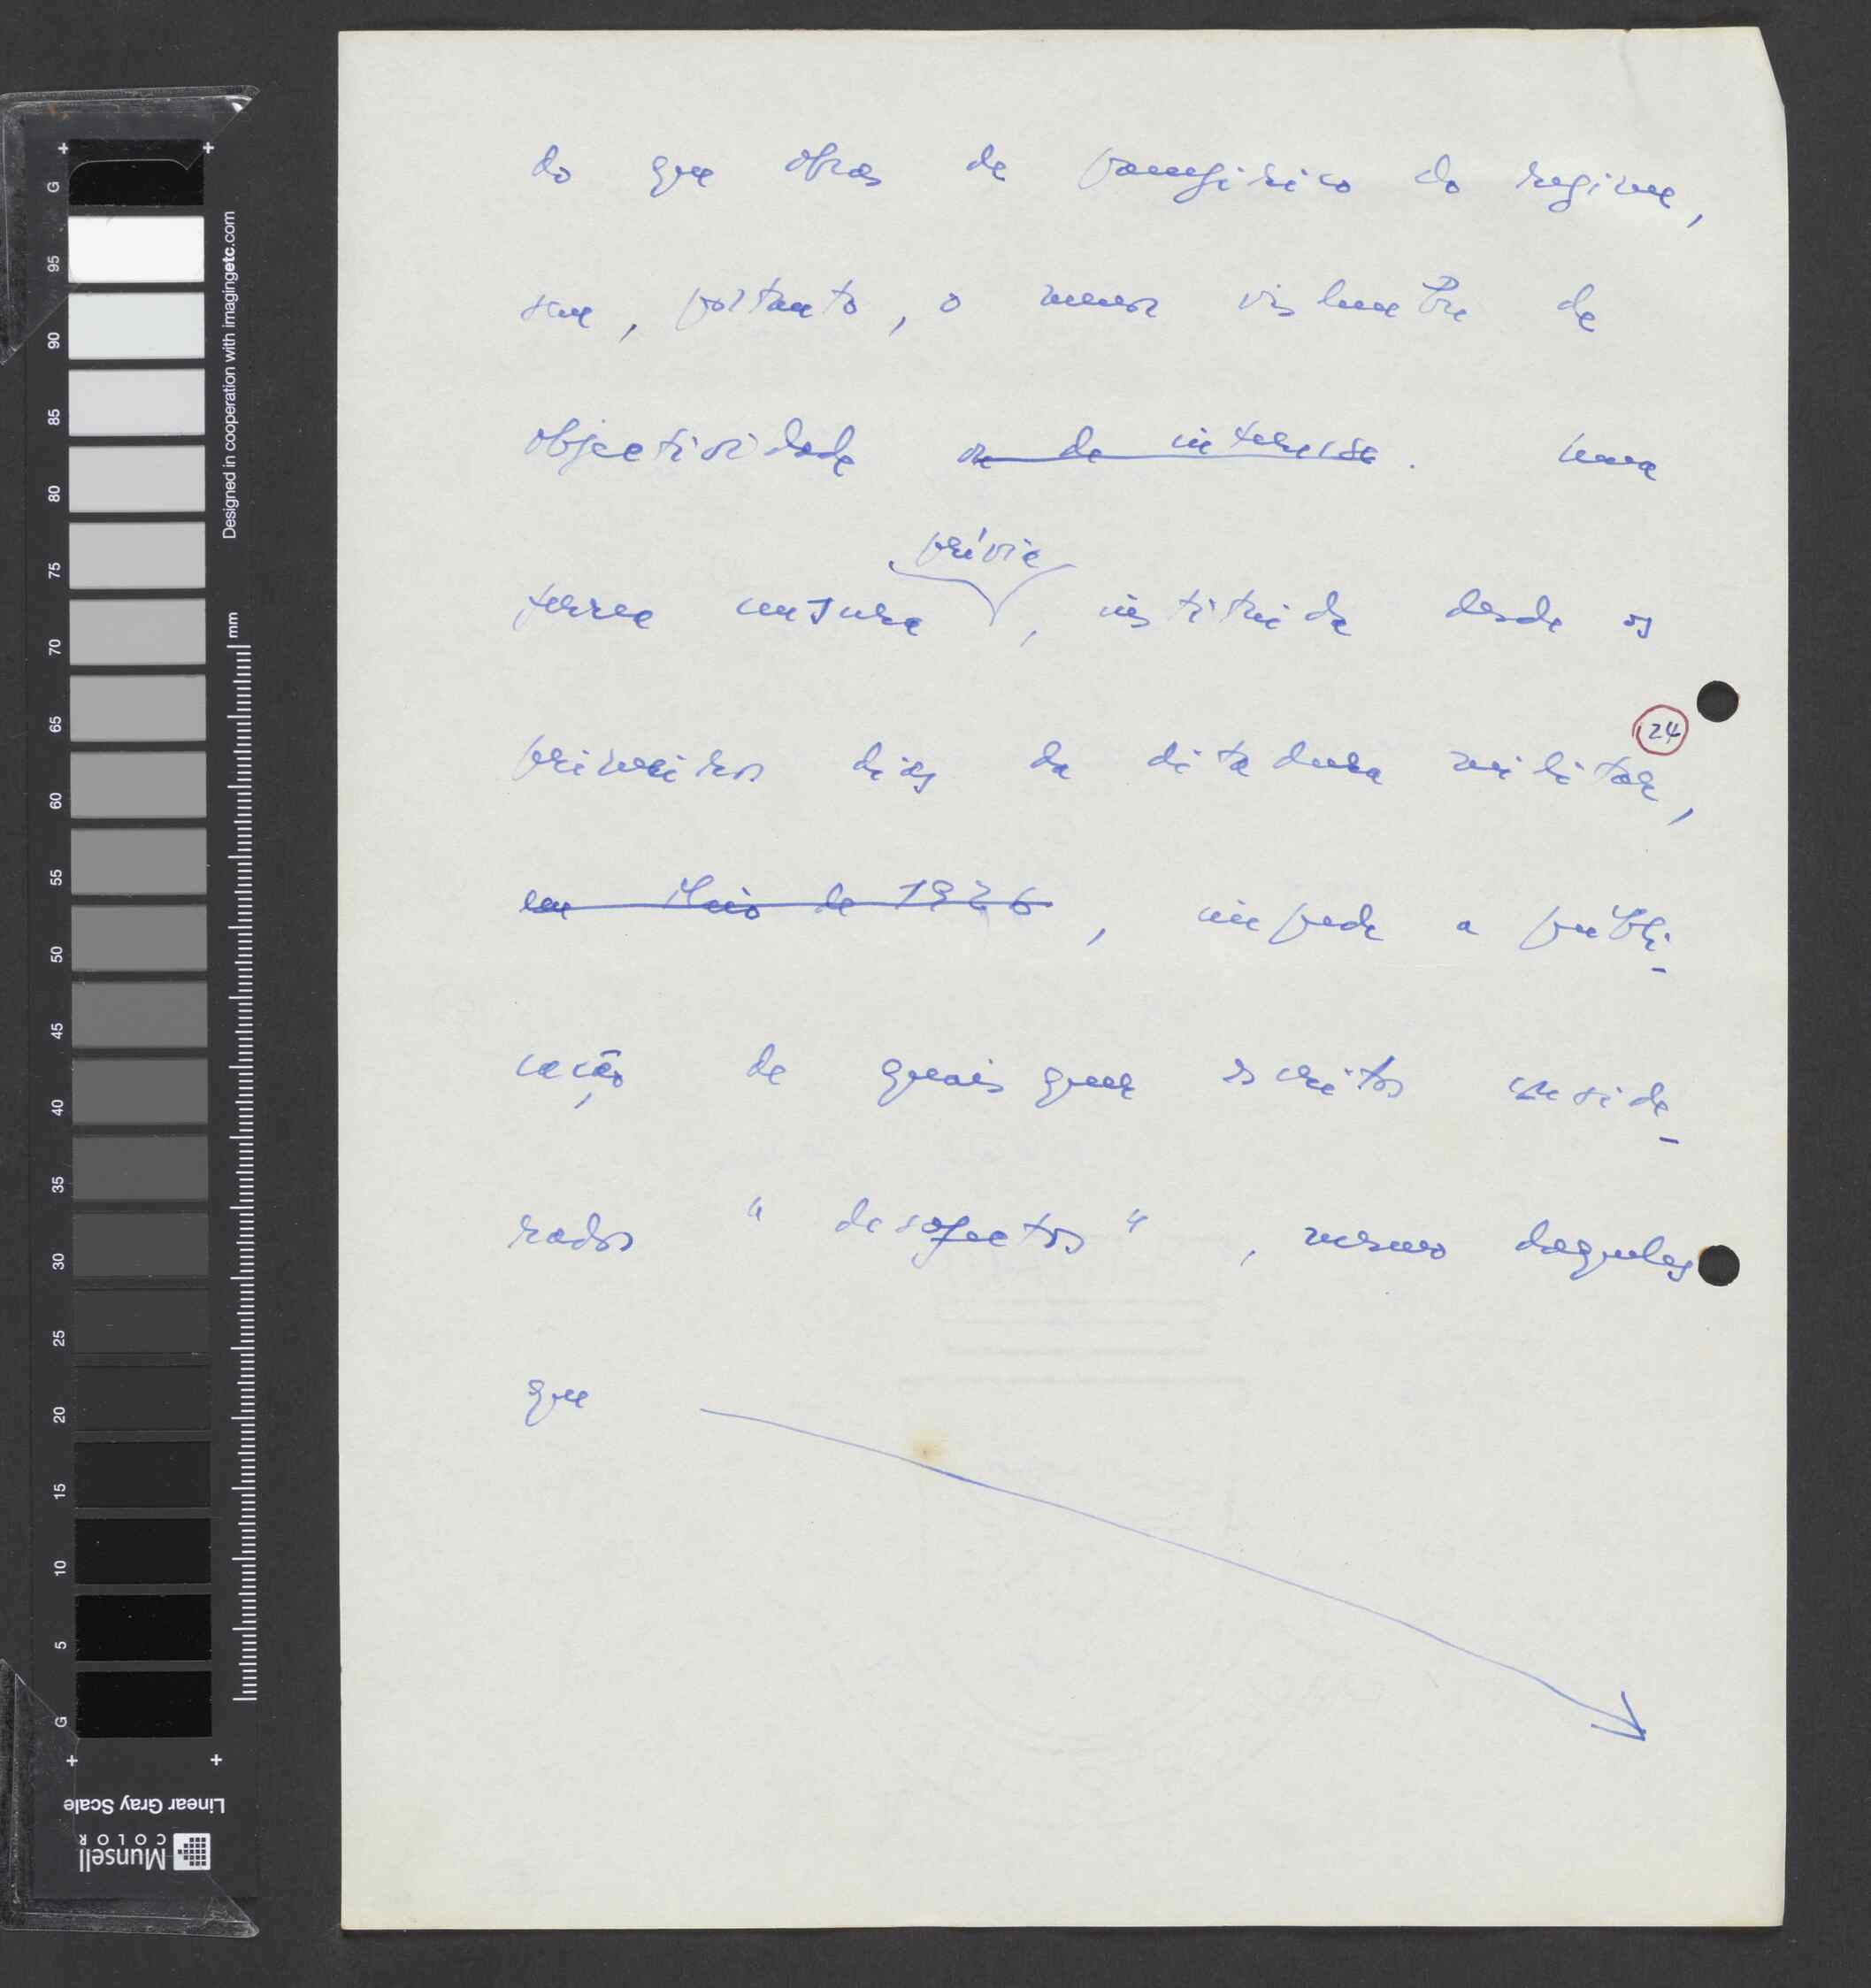 do que obras de panegírico do regime,
sem, portanto, o menor vislumbre de
objectividade ou de interesse. Uma
prévia
férrea censura, instituida desde os
24
primeiros dias da ditadura militar,
em Maio de 1926, impede a publi-
cação de quaisquer escritos conside-
rados "desafectos", mesmo daqueles
que
G 95 90 85 80 75 70 65 60 55 50 45 40 35 30 25 20 15 10 5 G
Designed in cooperation with imagingetc.com
mm
Linear Gray Scale
Munsell
COLOR